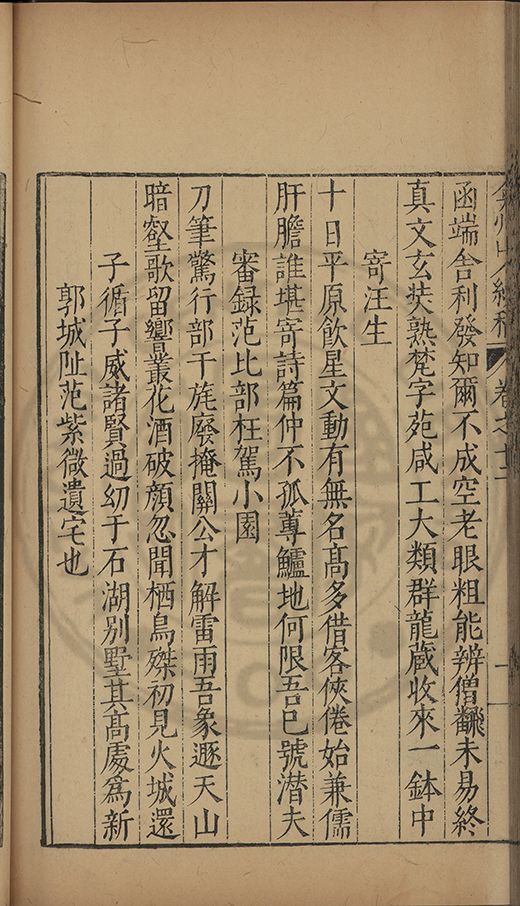 函端舍利發知爾不成空老眼粗能辨僧翻未易終
真文玄奘熟梵字苑咸工大類群龍藏收來一鉢中
寄汪生
十日平原飲星文動有無名高多借客俠倦始兼儒
肝膽誰堪寄詩篇仲不孤蓴鱸地何限吾已號潛夫
審録范比部枉駕小園
刀筆驚行部干旄廢掩關公才解雷雨吾象遯天山
暗壑歌留響叢花酒破顔忽聞栖鳥磔初見火城還
子循子威諸賢過幼于石湖別墅其高處爲新
郭城阯范紫微遺宅也